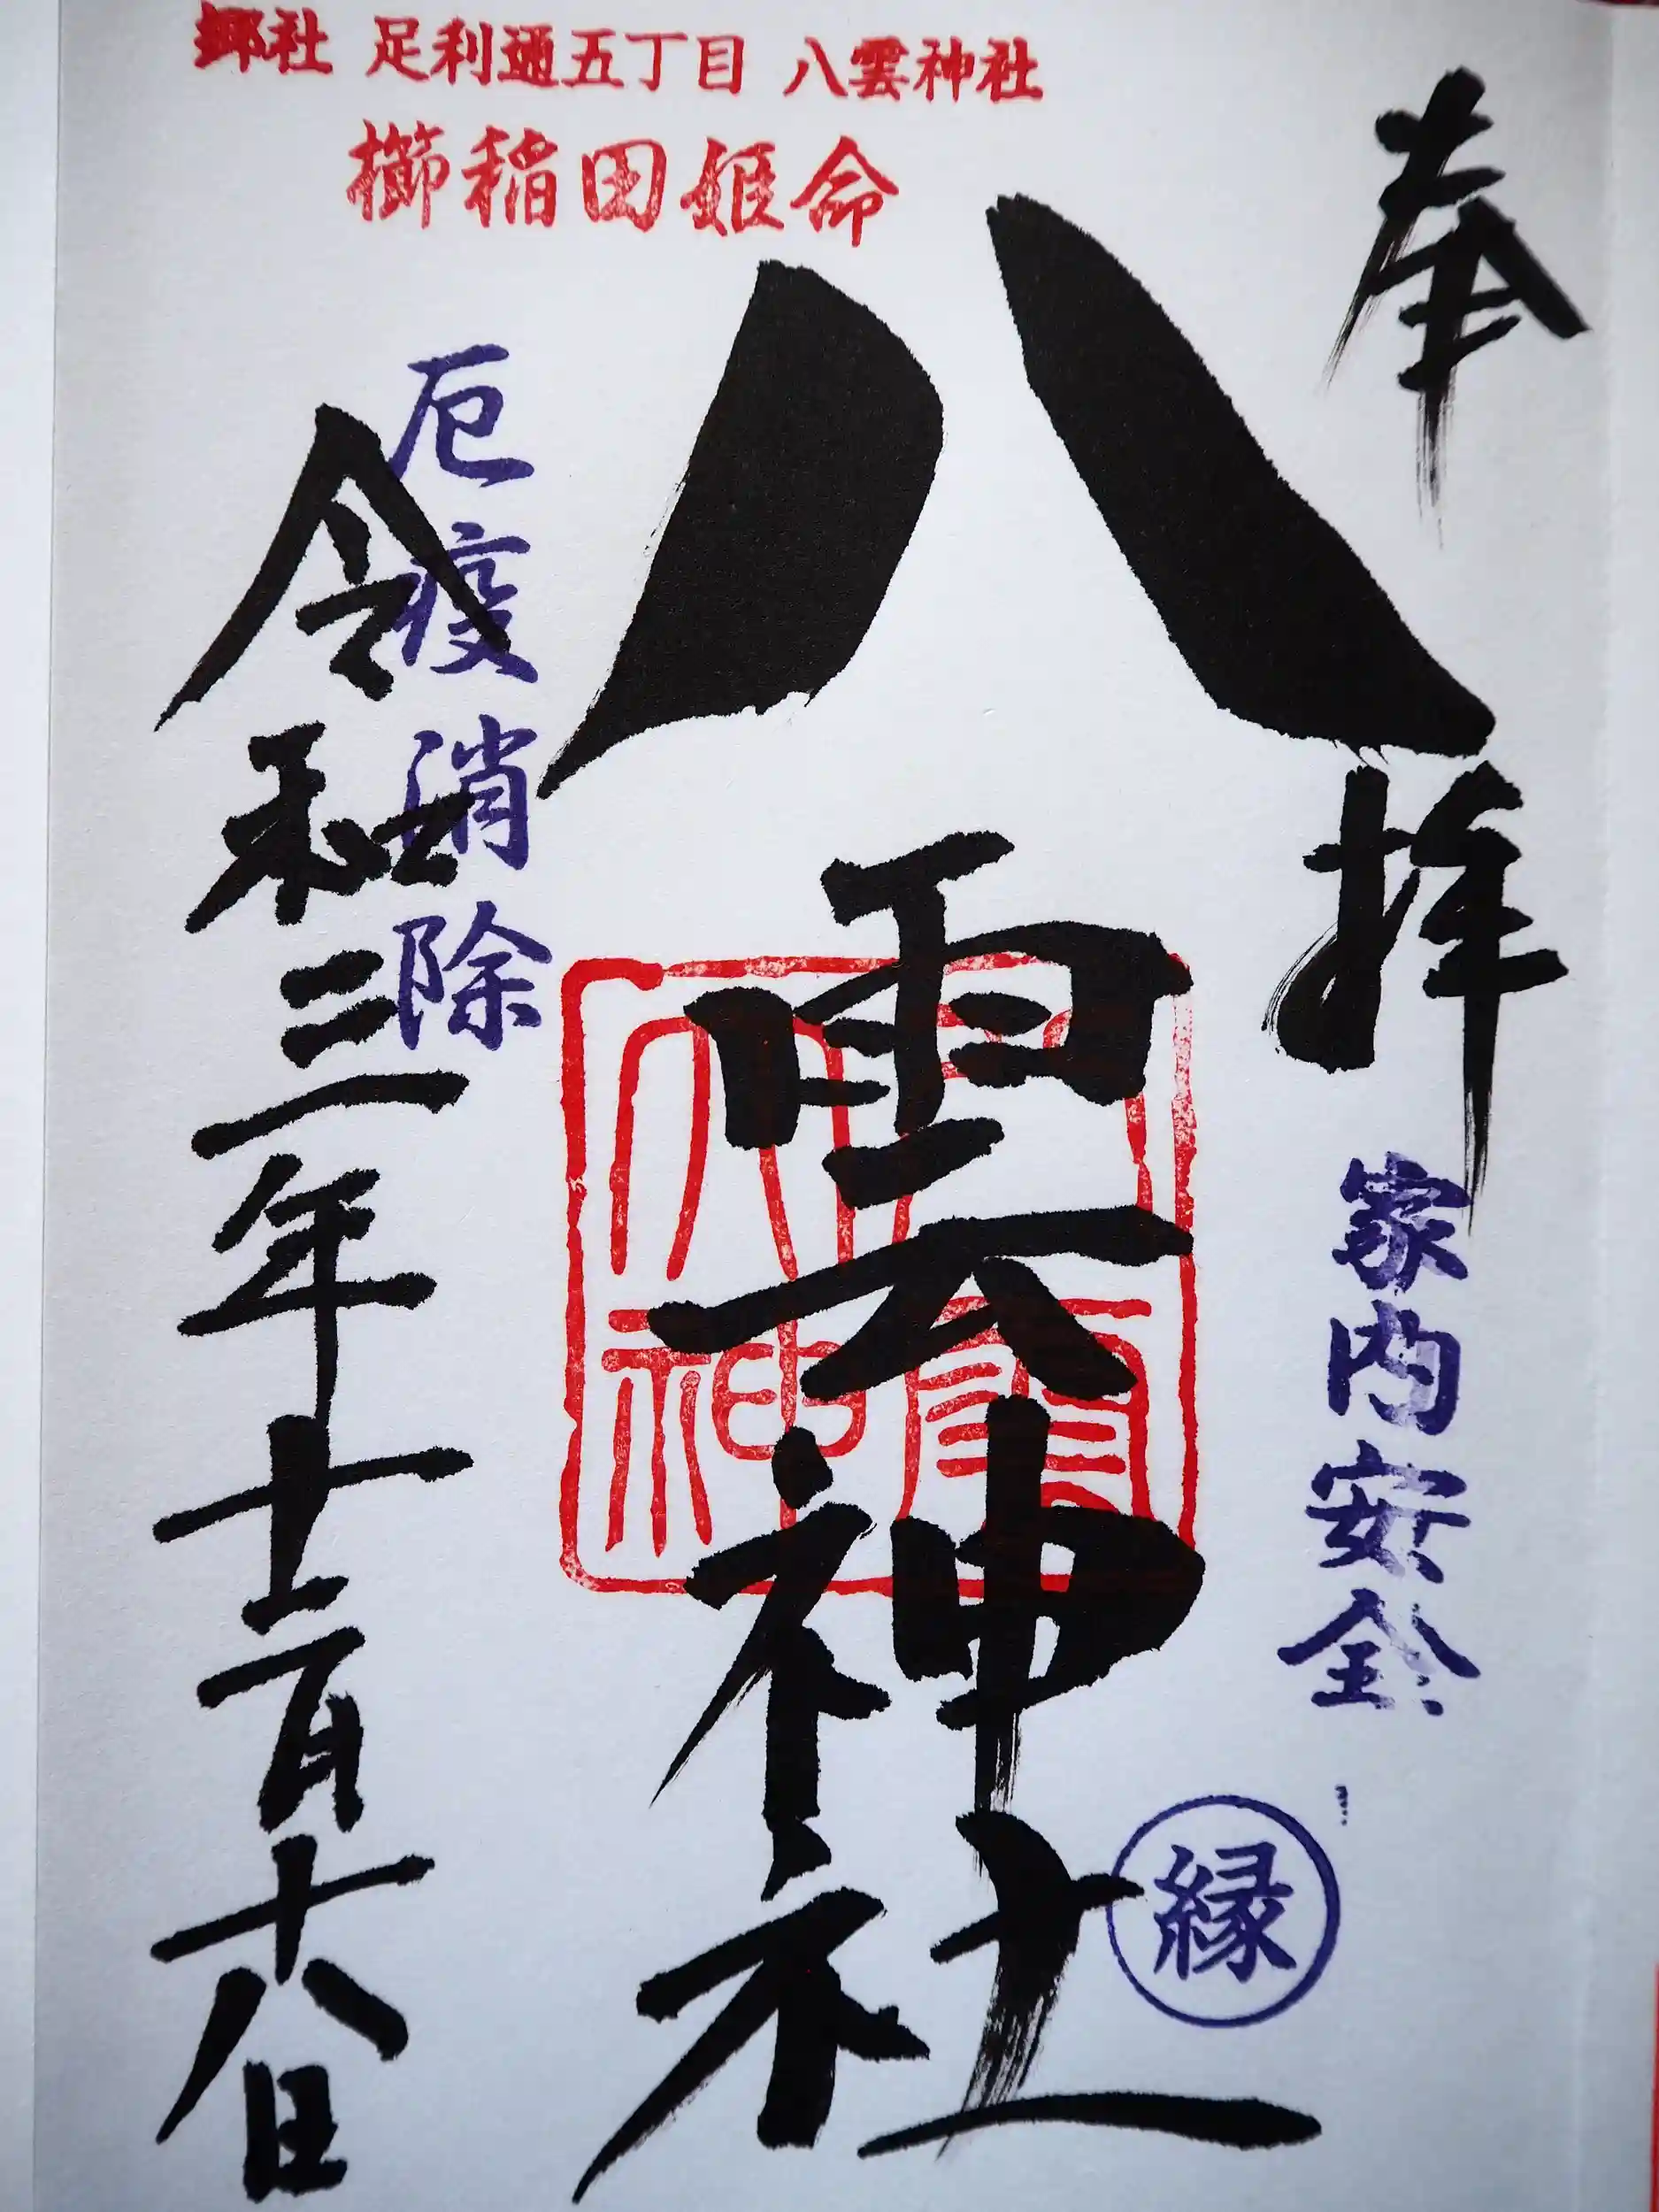 郷社 足利通五丁目 八雲神社
櫛稲田姫命
奉拝
家内安全
縁
八雲神社
厄疫消除
令和三年十二月十八日